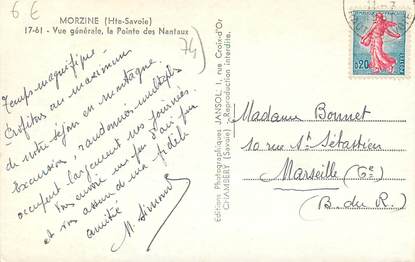 6 €
MORZINE (Hte-Savoie)
17-61 - Vue générale, la Pointe des Nantaux
74)
Temps magnifique -
Profitons au maximum
de notre séjour en montagne.
Excursions, randonnées multiples
occupent largement nos journées.
Vous envoie un peu d'air pur
et vous assure de ma fidèle
amitié
M. Simond
Editions Photographiques JANSOL 1, rue Croix-d'Or
CHAMBÉRY (Savoie) - Reproduction interdite.
0,20
POSTES
Madame Bonnet
10 rue St Sébastien
Marseille (6e)
(B. du R.)